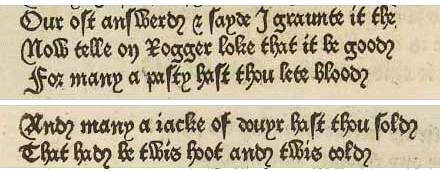 Our oſt anſwerd & ſayde I graunte it the
Now telle on Rogger loke that it be good
For many a paſty haſt thou lete blood
And many a iacke of douyr haſt thou ſold
That had be twis hoot and twis cold